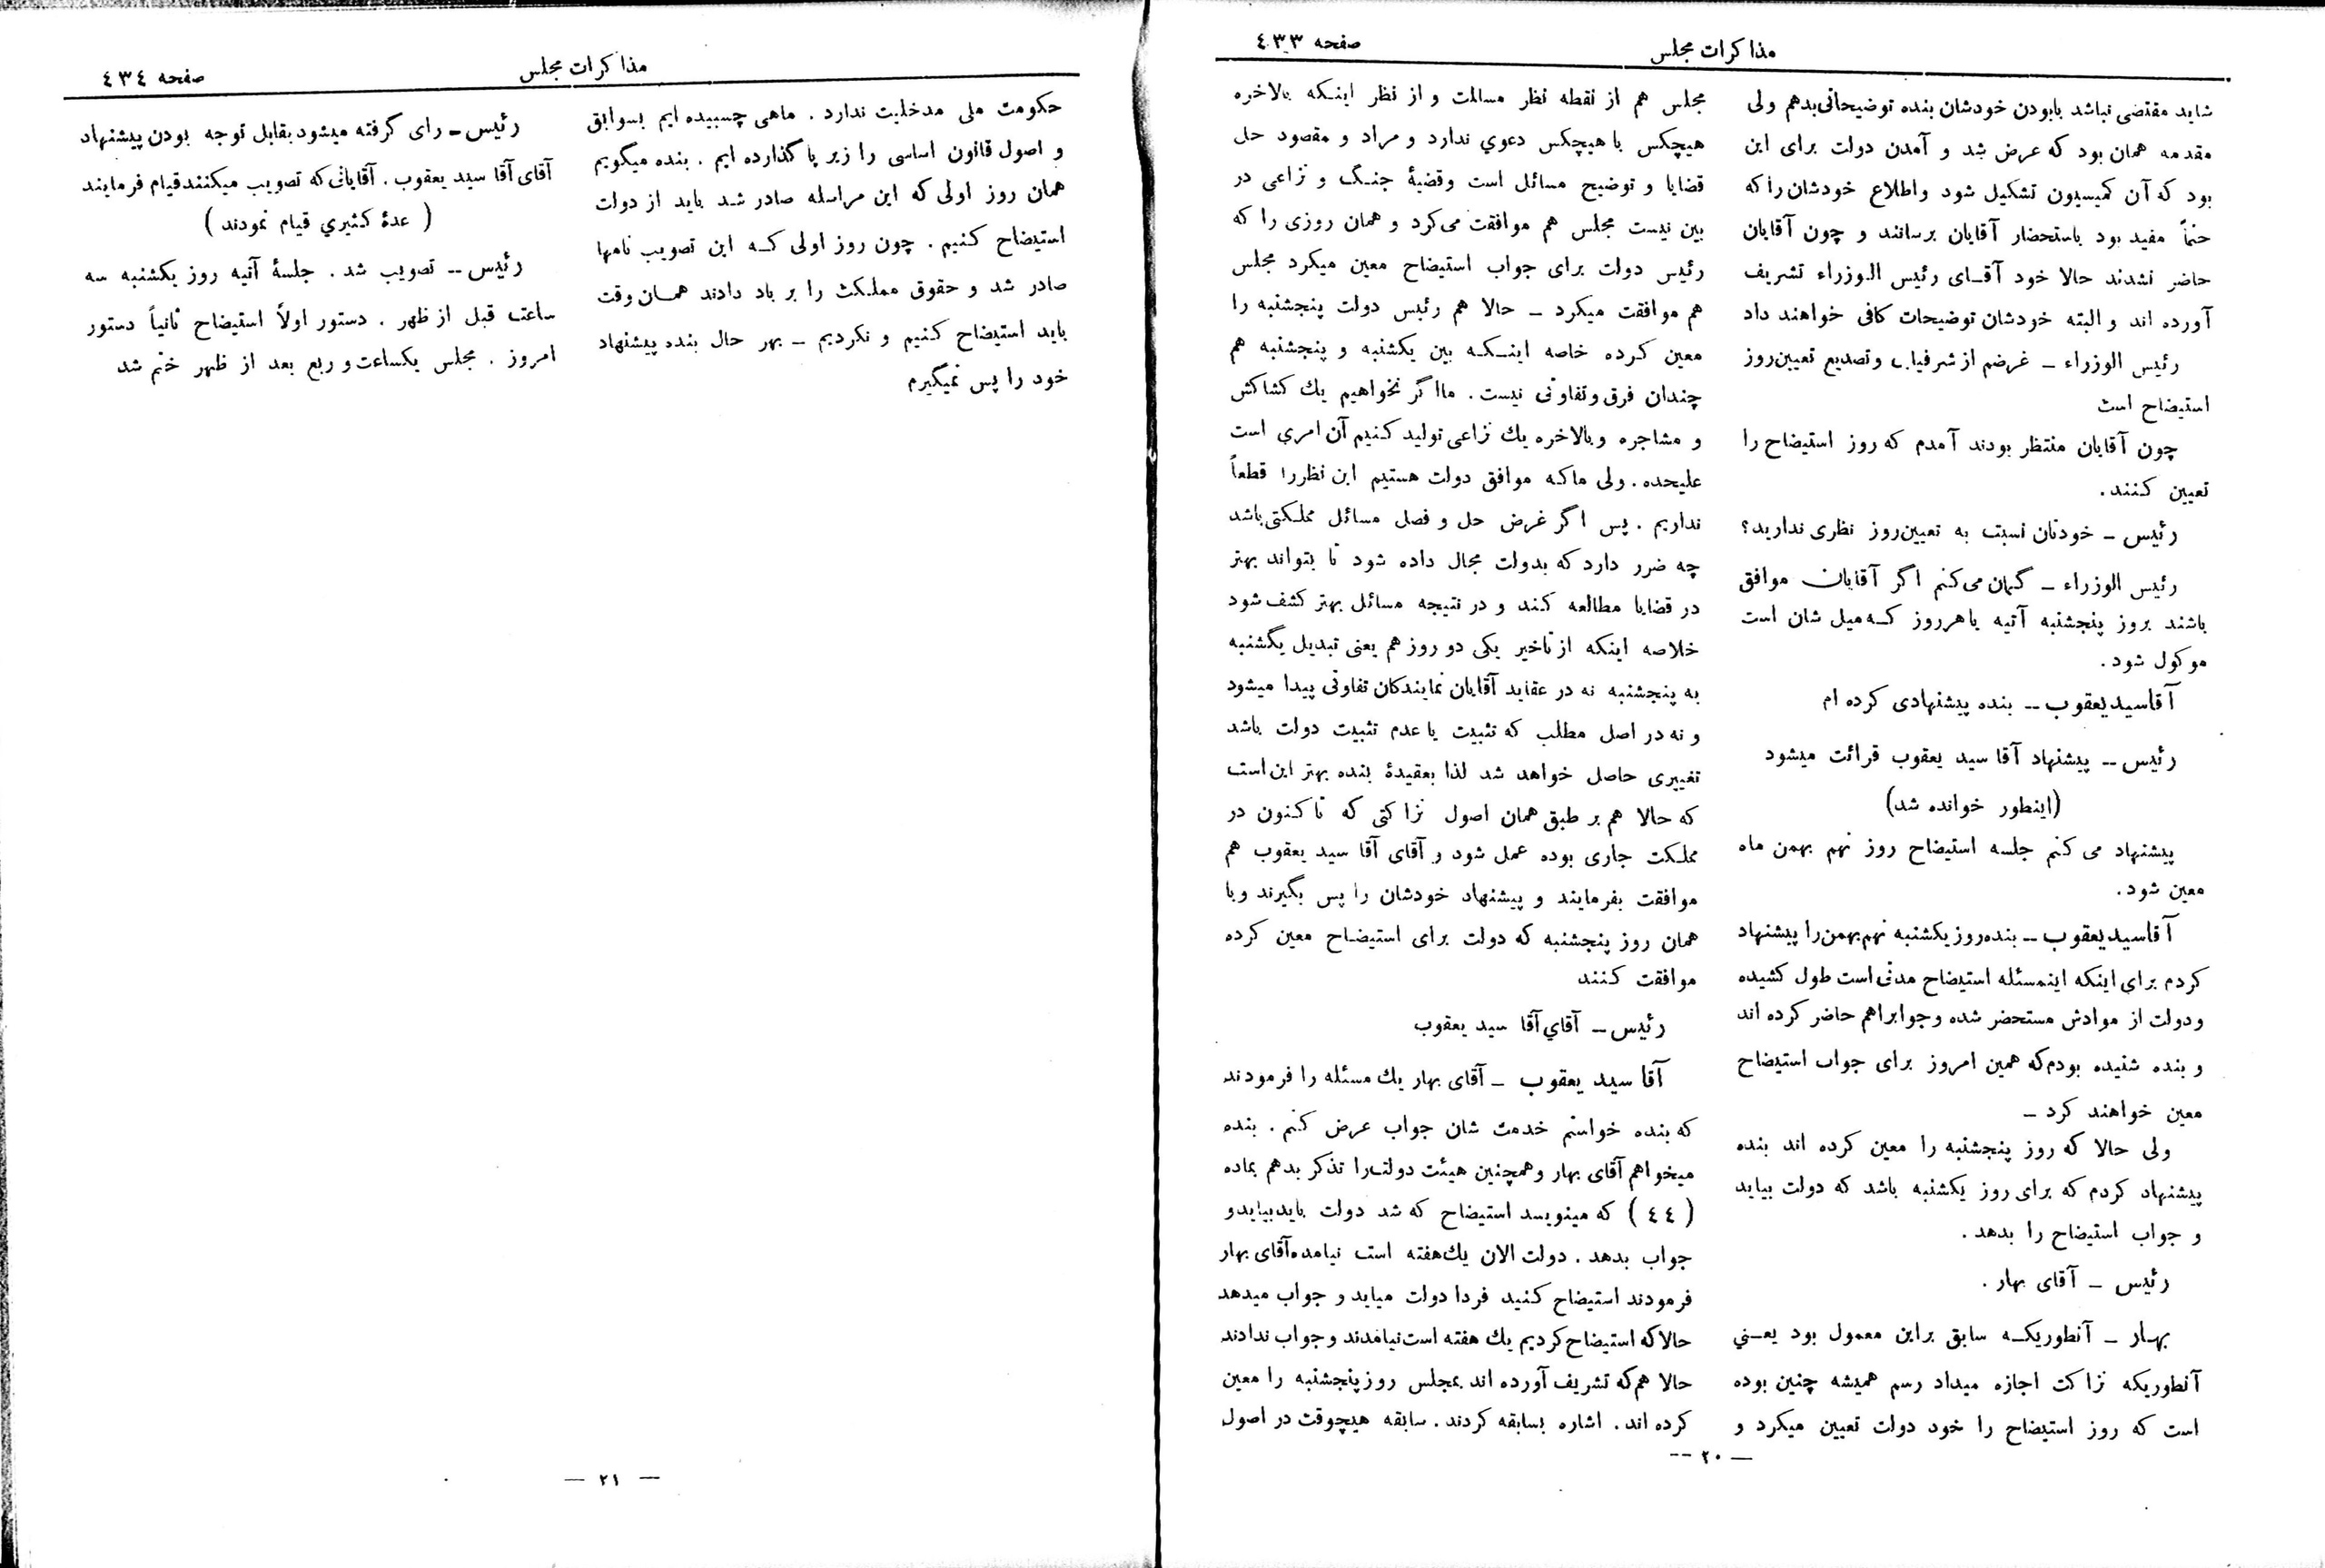 مذاکرات مجلس
صفحه ٤٣٣
شاید مقتضی نباشد بابودن خودشان بنده توضیحاتی بدهم ولی
مقدمه همان بود که عرض شد و آمدن دولت برای این
بود که آن کمیسیون تشکیل شود واطلاع خودشان را که
حتماً مفید بود باستحضار آقایان برسانند و چون آقایان
حاضر نشدند حالا خود آقـای رئیس الوزراء تشریف
آورده اند و البته خودشان توضیحات کافی خواهند داد
رئیس الوزراء ـ غرضم از شرفیابی وتصدیع تعیین روز
استیضاح است
چون آقایان منتظر بودند آمدم که روز استیضاح را
تعیین کنند.
رئیس ـ خودتان نسبت به تعیین روز نظری ندارید؟
رئیس الوزراء ـ گمان می کنم اگر آقایان موافق
باشند بروز پنجشنبه آتیه یا هر روز کـه میل شان است
موکول شود.
آقاسید یعقوب ــ بنده پیشنهادی کرده ام
رئیس ــ پیشنهاد آقا سید یعقوب قرائت میشود
(اینطور خوانده شد)
پیشنهاد می کنم جلسه استیضاح روز نهم بهمن ماه
معین شود.
آقاسید یعقوب ــ بنده روز یکشنبه نهم بهمن را پیشنهاد
کردم برای اینکه اینمسئله استیضاح مدتی است طول کشیده
ودولت از موادش مستحضر شده وجوابراهم حاضر کرده اند
و بنده شنیده بودم که همین امروز برای جواب استیضاح
معین خواهند کرد ـ
ولی حالا که روز پنجشنبه را معین کرده اند بنده
پیشنهاد کردم که برای روز یکشنبه باشد که دولت بیاید
و جواب استیضاح را بدهد.
رئیس ـ آقای بهار.
بهـار ـ آنطوریکـه سابق براین معمول بود یعـنی
آنطوریکه نزاکت اجازه میداد رسم همیشه چنین بوده
است که روز استیضاح را خود دولت تعیین میکرد و
مجلس هم از نقطه نظر مسالمت و از نظر اینـکه بالاخره
هیچکس با هیچکس دعوي ندارد و مراد و مقصود حل
قضایا و توضیح مسائل است وقضیهٔ جنـگ و نزاعی در
بین نیست مجلس هم موافقت می کرد و همان روزی را که
رئیس دولت برای جواب استیضاح معین میکرد مجلس
هم موافقت میکرد ـ حالا هم رئیس دولت پنجشنبه را
معین کرده خاصه اینـکـه بین یکشنبه و پنجشنبه هم
چندان فرق وتفاوتی نیست. مااگر نخواهیم یك کشاکش
و مشاجره وبالاخره یك نزاعی تولید کنیم آن امری است
علیحده. ولی ماکه موافق دولت هستیم این نظررا قطعاً
نداریم. پس اگر غرض حل و فصل مسائل مملکتی باشد
چه ضرر دارد که بدولت مجال داده شود تا بتواند بهتر
در قضایا مطالعه کند و در نتیجه مسائل بهتر کشف شود
خلاصه اینکه از تأخیر یکی دو روز هم یعنی تبدیل یکشنبه
به پنجشنبه نه در عقاید آقایان نمایندکان تفاوتی پیدا میشود
و نه در اصل مطلب که تثبیت یا عدم تثبیت دولت باشد
تغییری حاصل خواهد شد لذا بعقیدهٔ بنده بهتر این است
که حالا هم بر طبق همان اصول نزاکتی که تاکنون در
مملکت جاری بوده عمل شود و آقای آقا سید یعقوب هم
موافقت بفرمایند و پیشنهاد خودشان را پس بگیرند و با
همان روز پنجشنبه که دولت برای استیضاح معین کرده
موافقت کنند
رئیس ـ آقاي آقا سید یعقوب
آقا سید یعقوب ـ آقای بهار یك مسئله را فرمودند
که بنده خواستم خدمت شان جواب عرض کنم. بنده
میخواهم آقای بهار وهمچنین هیئت دولت را تذکر بدهم بماده
(٤٤) که مینویسد استیضاح که شد دولت باید بیاید و
جواب بدهد. دولت الان یك هفته است نیامده آقای بهار
فرمودند استیضاح کنید فردا دولت میاید و جواب میدهد
حالا که استیضاح کردیم یك هفته است نیامدند و جواب ندادند
حالا هم که تشریف آورده اند بمجلس روز پنجشنبه را معین
کرده اند. اشاره بسابقه کردند. سابقه هیچوقت در اصول
— ٢٠ --
مذاکرات مجلس
صفحه ٤٣٤
حکومت ملی مدخلیت ندارد. ماهی چسبیده ایم بسوابق
و اصول قانون اساسی را زیر پا گذارده ایم. بنده میگویم
همان روز اولی که این مراسله صادر شد باید از دولت
استیضاح کنیم. چون روز اولی کـه این تصویب نامها
صادر شد و حقوق مملکت را بر باد دادند همـان وقت
باید استیضاح کنیم و نکردیم ـ بهر حال بنده پیشنهاد
خود را پس نمیگیرم
رئیس ـ رای گرفته میشود بقابل توجه بودن پیشنهاد
آقای آقا سید یعقوب. آقایانی که تصویب میکنند قیام فرمایند
(عدهٔ کثیري قیام نمودند)
رئیس ــ تصویب شد. جلسهٔ آتیه روز یکشنبه سه
ساعت قبل از ظهر. دستور اولاً استیضاح ثانیاً دستور
امروز. مجلس یکساعت و ربع بعد از ظهر ختم شد
— ٢١ —